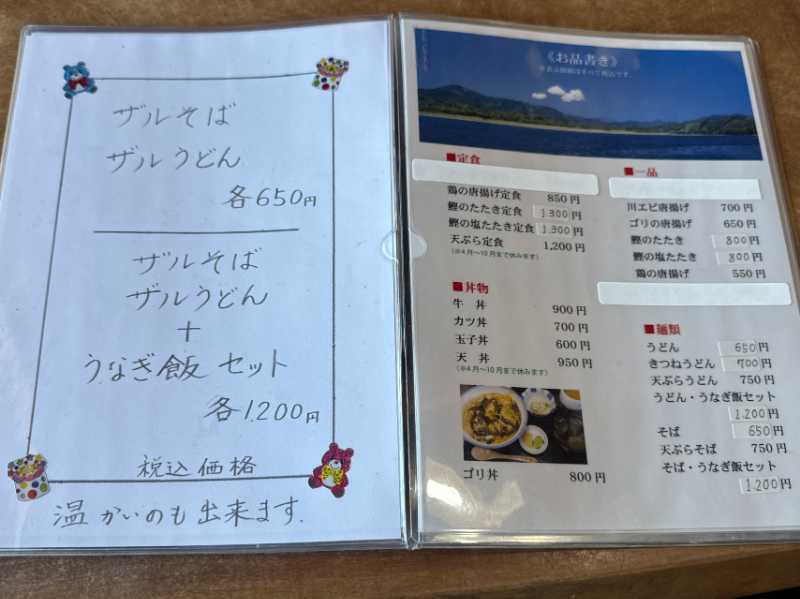 ザルそば
ザルうどん
各650円
ザルそば
ザルうどん
+
うなぎ飯 セット
各1,200円
税込価格
温かいのも出来ます.
《お品書き》
■定食
鶏の唐揚げ定食 850円
鰹のたたき定食 1,300円
鰹の塩たたき定食 1,300円
天ぷら定食 1,200円
(※4月〜10月まで休みます)
■丼物
牛 丼 900円
カツ丼 700円
玉子丼 600円
天 丼 950円
(※4月〜10月まで休みます)
ゴリ丼 800円
■一品
川エビ唐揚げ 700円
ゴリの唐揚げ 650円
鰹のたたき 800円
鰹の塩たたき 800円
鶏の唐揚げ 550円
■麺類
うどん 650円
きつねうどん 700円
天ぷらうどん 750円
うどん・うなぎ飯セット
1,200円
そば 650円
天ぷらそば 750円
そば・うなぎ飯セット
1,200円